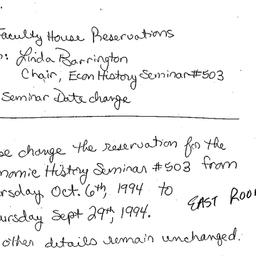 Faculty House Reservations
: Linda Barrington
Chair, Econ History Seminar #503
Seminar Date change
se change the reservation for the
nomic History Seminar #503 from
rsday, Oct. 6th, 1994 to EAST ROO
ursday Sept 29th, 1994.
other details remain unchanged.